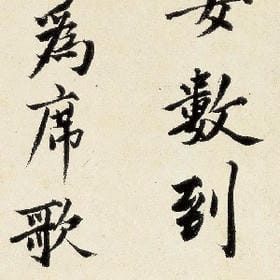 數到
為席歌